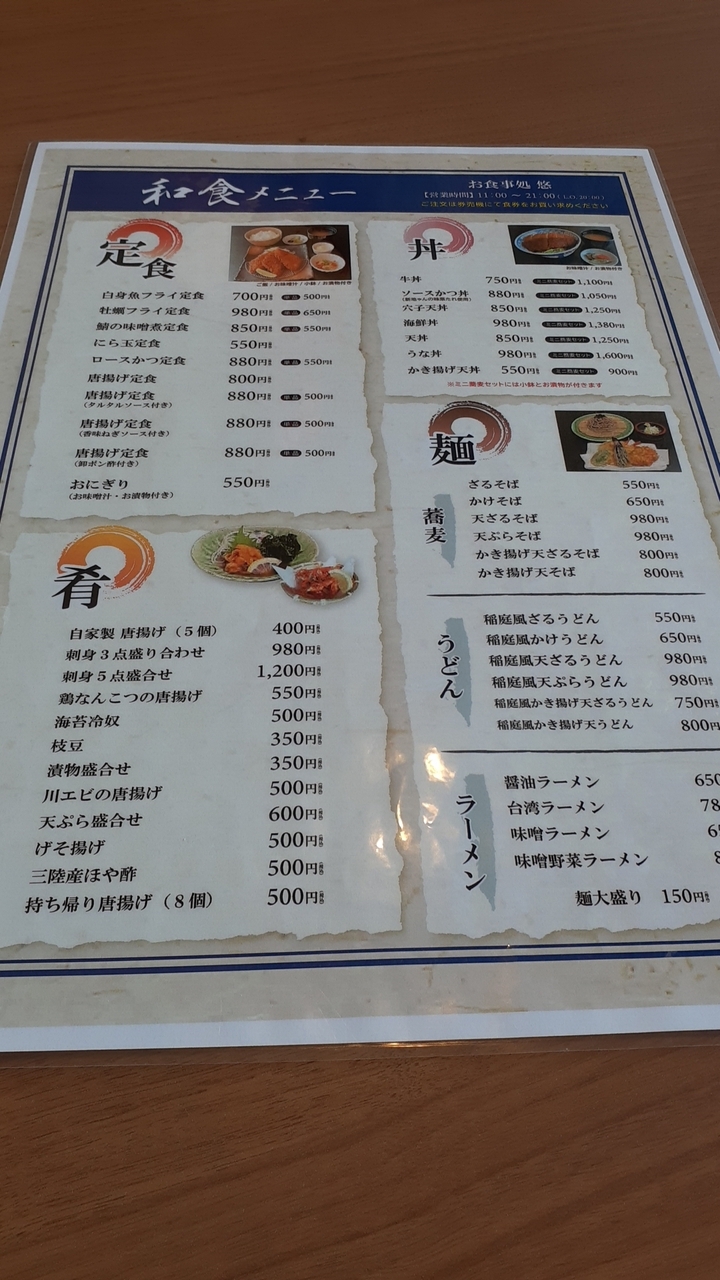 和食メニュー
お食事処 悠
【営業時間】11:00 ~ 21:00 (L.O.20:00)
ご注文は券売機にて食券をお買い求めください
定食
ご飯 / お味噌汁 / 小鉢 / お漬物付き
白身魚フライ定食 700円 単品 500円
牡蠣フライ定食 980円 単品 650円
鯖の味噌煮定食 850円 単品 550円
にら玉定食 550円
ロースかつ定食 880円 単品 550円
唐揚げ定食 800円
唐揚げ定食 880円 単品 500円
(タルタルソース付き)
唐揚げ定食 880円 単品 500円
(香味ねぎソース付き)
唐揚げ定食 880円 単品 500円
(卸ポン酢付き)
おにぎり 550円
(お味噌汁・お漬物付き)
肴
自家製 唐揚げ(5個) 400円
刺身3点盛り合わせ 980円
刺身5点盛合せ 1,200円
鶏なんこつの唐揚げ 550円
海苔冷奴 500円
枝豆 350円
漬物盛合せ 350円
川エビの唐揚げ 500円
天ぷら盛合せ 600円
げそ揚げ 500円
三陸産ほや酢 500円
持ち帰り唐揚げ(8個) 500円
丼
お味噌汁 / お漬物付き
牛丼 750円 ミニ蕎麦セット 1,100円
ソースかつ丼 880円 ミニ蕎麦セット 1,050円
穴子天丼 850円 ミニ蕎麦セット 1,250円
海鮮丼 980円 ミニ蕎麦セット 1,380円
天丼 850円 ミニ蕎麦セット 1,250円
うな丼 980円 ミニ蕎麦セット 1,600円
かき揚げ天丼 550円 ミニ蕎麦セット 900円
※ミニ蕎麦セットには小鉢とお漬物が付きます
麺
蕎麦
ざるそば 550円
かけそば 650円
天ざるそば 980円
天ぷらそば 980円
かき揚げ天ざるそば 800円
かき揚げ天そば 800円
うどん
稲庭風ざるうどん 550円
稲庭風かけうどん 650円
稲庭風天ざるうどん 980円
稲庭風天ぷらうどん 980円
稲庭風かき揚げ天ざるうどん 750円
稲庭風かき揚げ天うどん 800円
ラーメン
醤油ラーメン 650
台湾ラーメン 78
味噌ラーメン 6
味噌野菜ラーメン
麺大盛り 150円